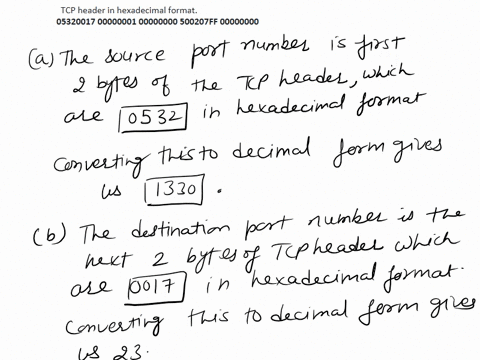 TCP header in hexadecimal format.
05320017 00000001 00000000 500207FF 00000000
(a) The source port number is first
2 bytes of the TCP header, which
are 0532 in hexadecimal format
Converting this to decimal form gives
us 1330.
(b) The destination port number is the
next 2 bytes of TCP header which
are 0017 in hexadecimal format.
Converting this to decimal form gives
us 23.